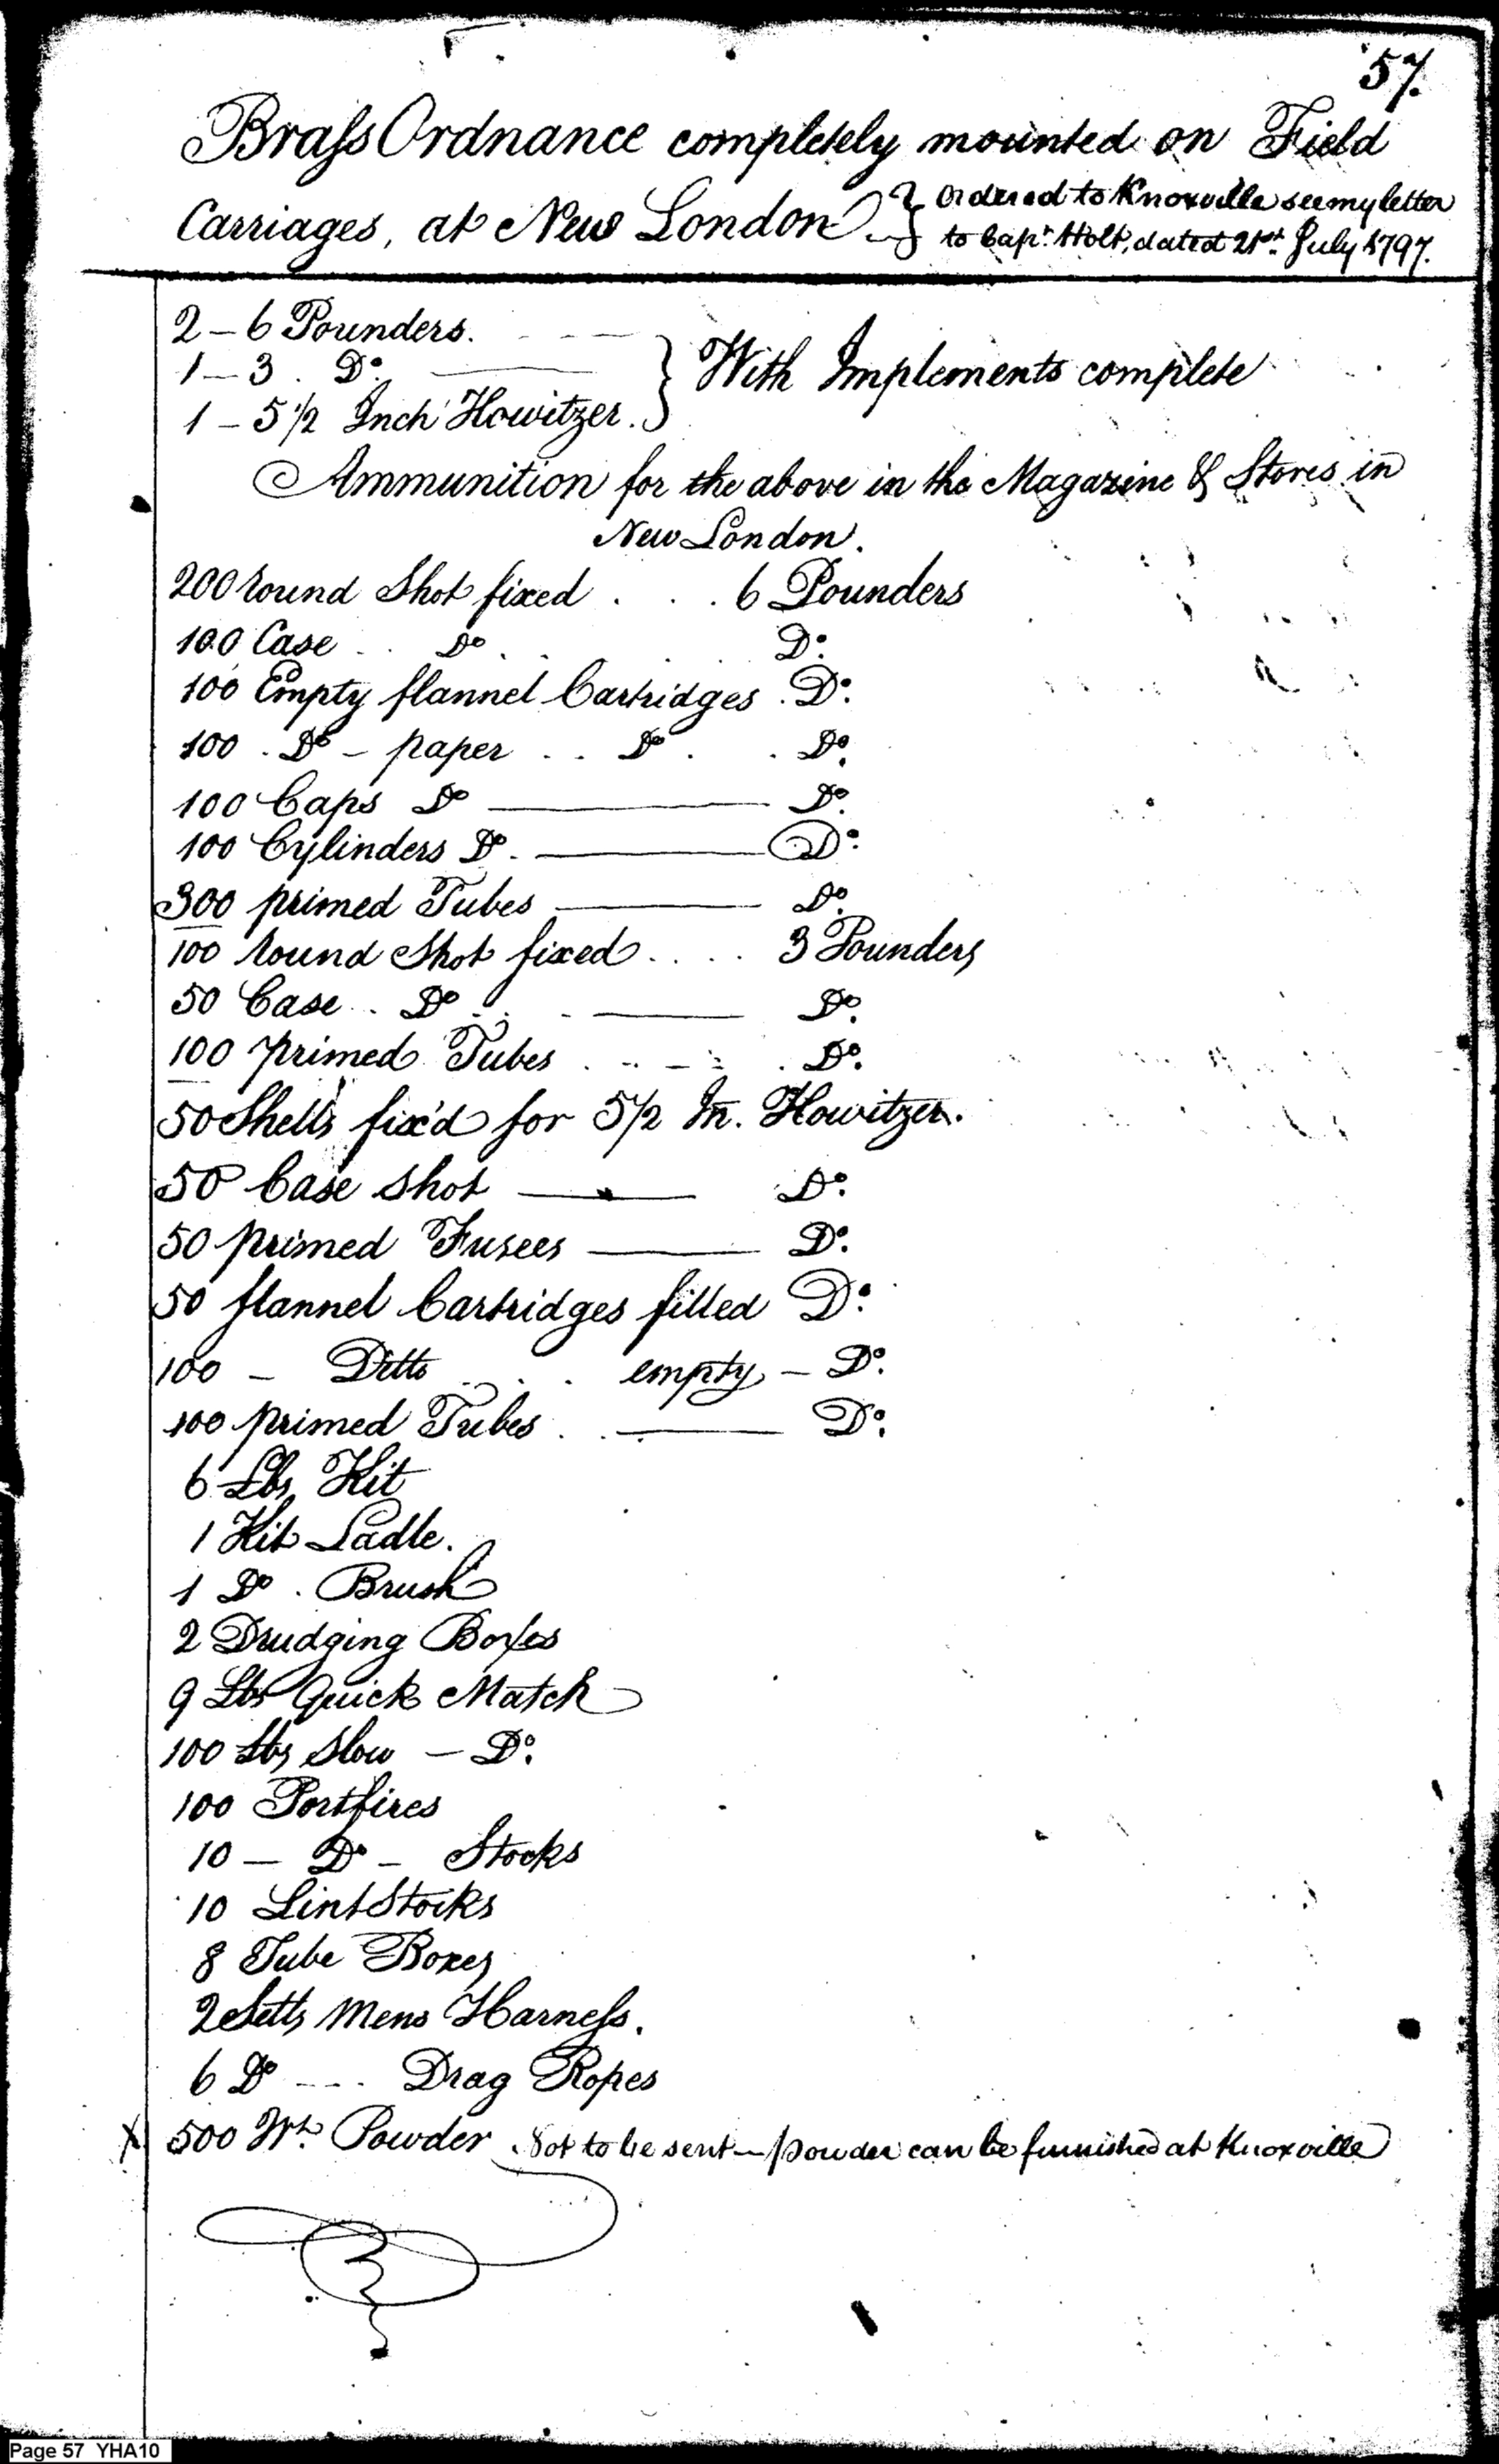 57.
Brass Ordnance completely mounted on Field
Carriages, at New London } Ordered to Knoxville see my letter
to Capt. Holt, dated 21st. July 1797.
2 – 6 Pounders. - - —
1 – 3 . Do. ——— } With Implements complete
1 – 5 1/2 Inch Howitzer.
Ammunition for the above in the Magazine & Stores in
New London.
200 round Shot fixed . . . 6 Pounders
100 Case . . Do . . . Do.
100 Empty flannel Cartridges . Do.
100 . Do – paper . . Do . . Do.
100 Caps Do ——— Do.
100 Cylinders Do. ——— Do.
300 primed Tubes ——— Do.
100 round Shot fixed . . . . 3 Pounders
50 Case . . Do . . ——— Do.
100 primed Tubes . . . – . . Do.
50 Shells fix'd for 5 1/2 In. Howitzer.
50 Case Shot ——— Do.
50 primed Fusees ——— Do.
50 flannel Cartridges filled Do.
100 – Ditto . . . empty – Do.
100 primed Tubes . . ——— Do.
6 Lbs Kit
1 Kit Ladle.
1 Do . Brush
2 Drudging Boxes
9 Lbs Quick Match
100 Lbs Slow – Do.
100 Portfires
10 – Do – Stocks
10 Lint Stocks
8 Tube Boxes
2 Setts Mens Harness.
6 Do - - - . Drag Ropes
X 500 Wt. Powder Not to be sent – powder can be furnished at Knoxville
Page 57 YHA10